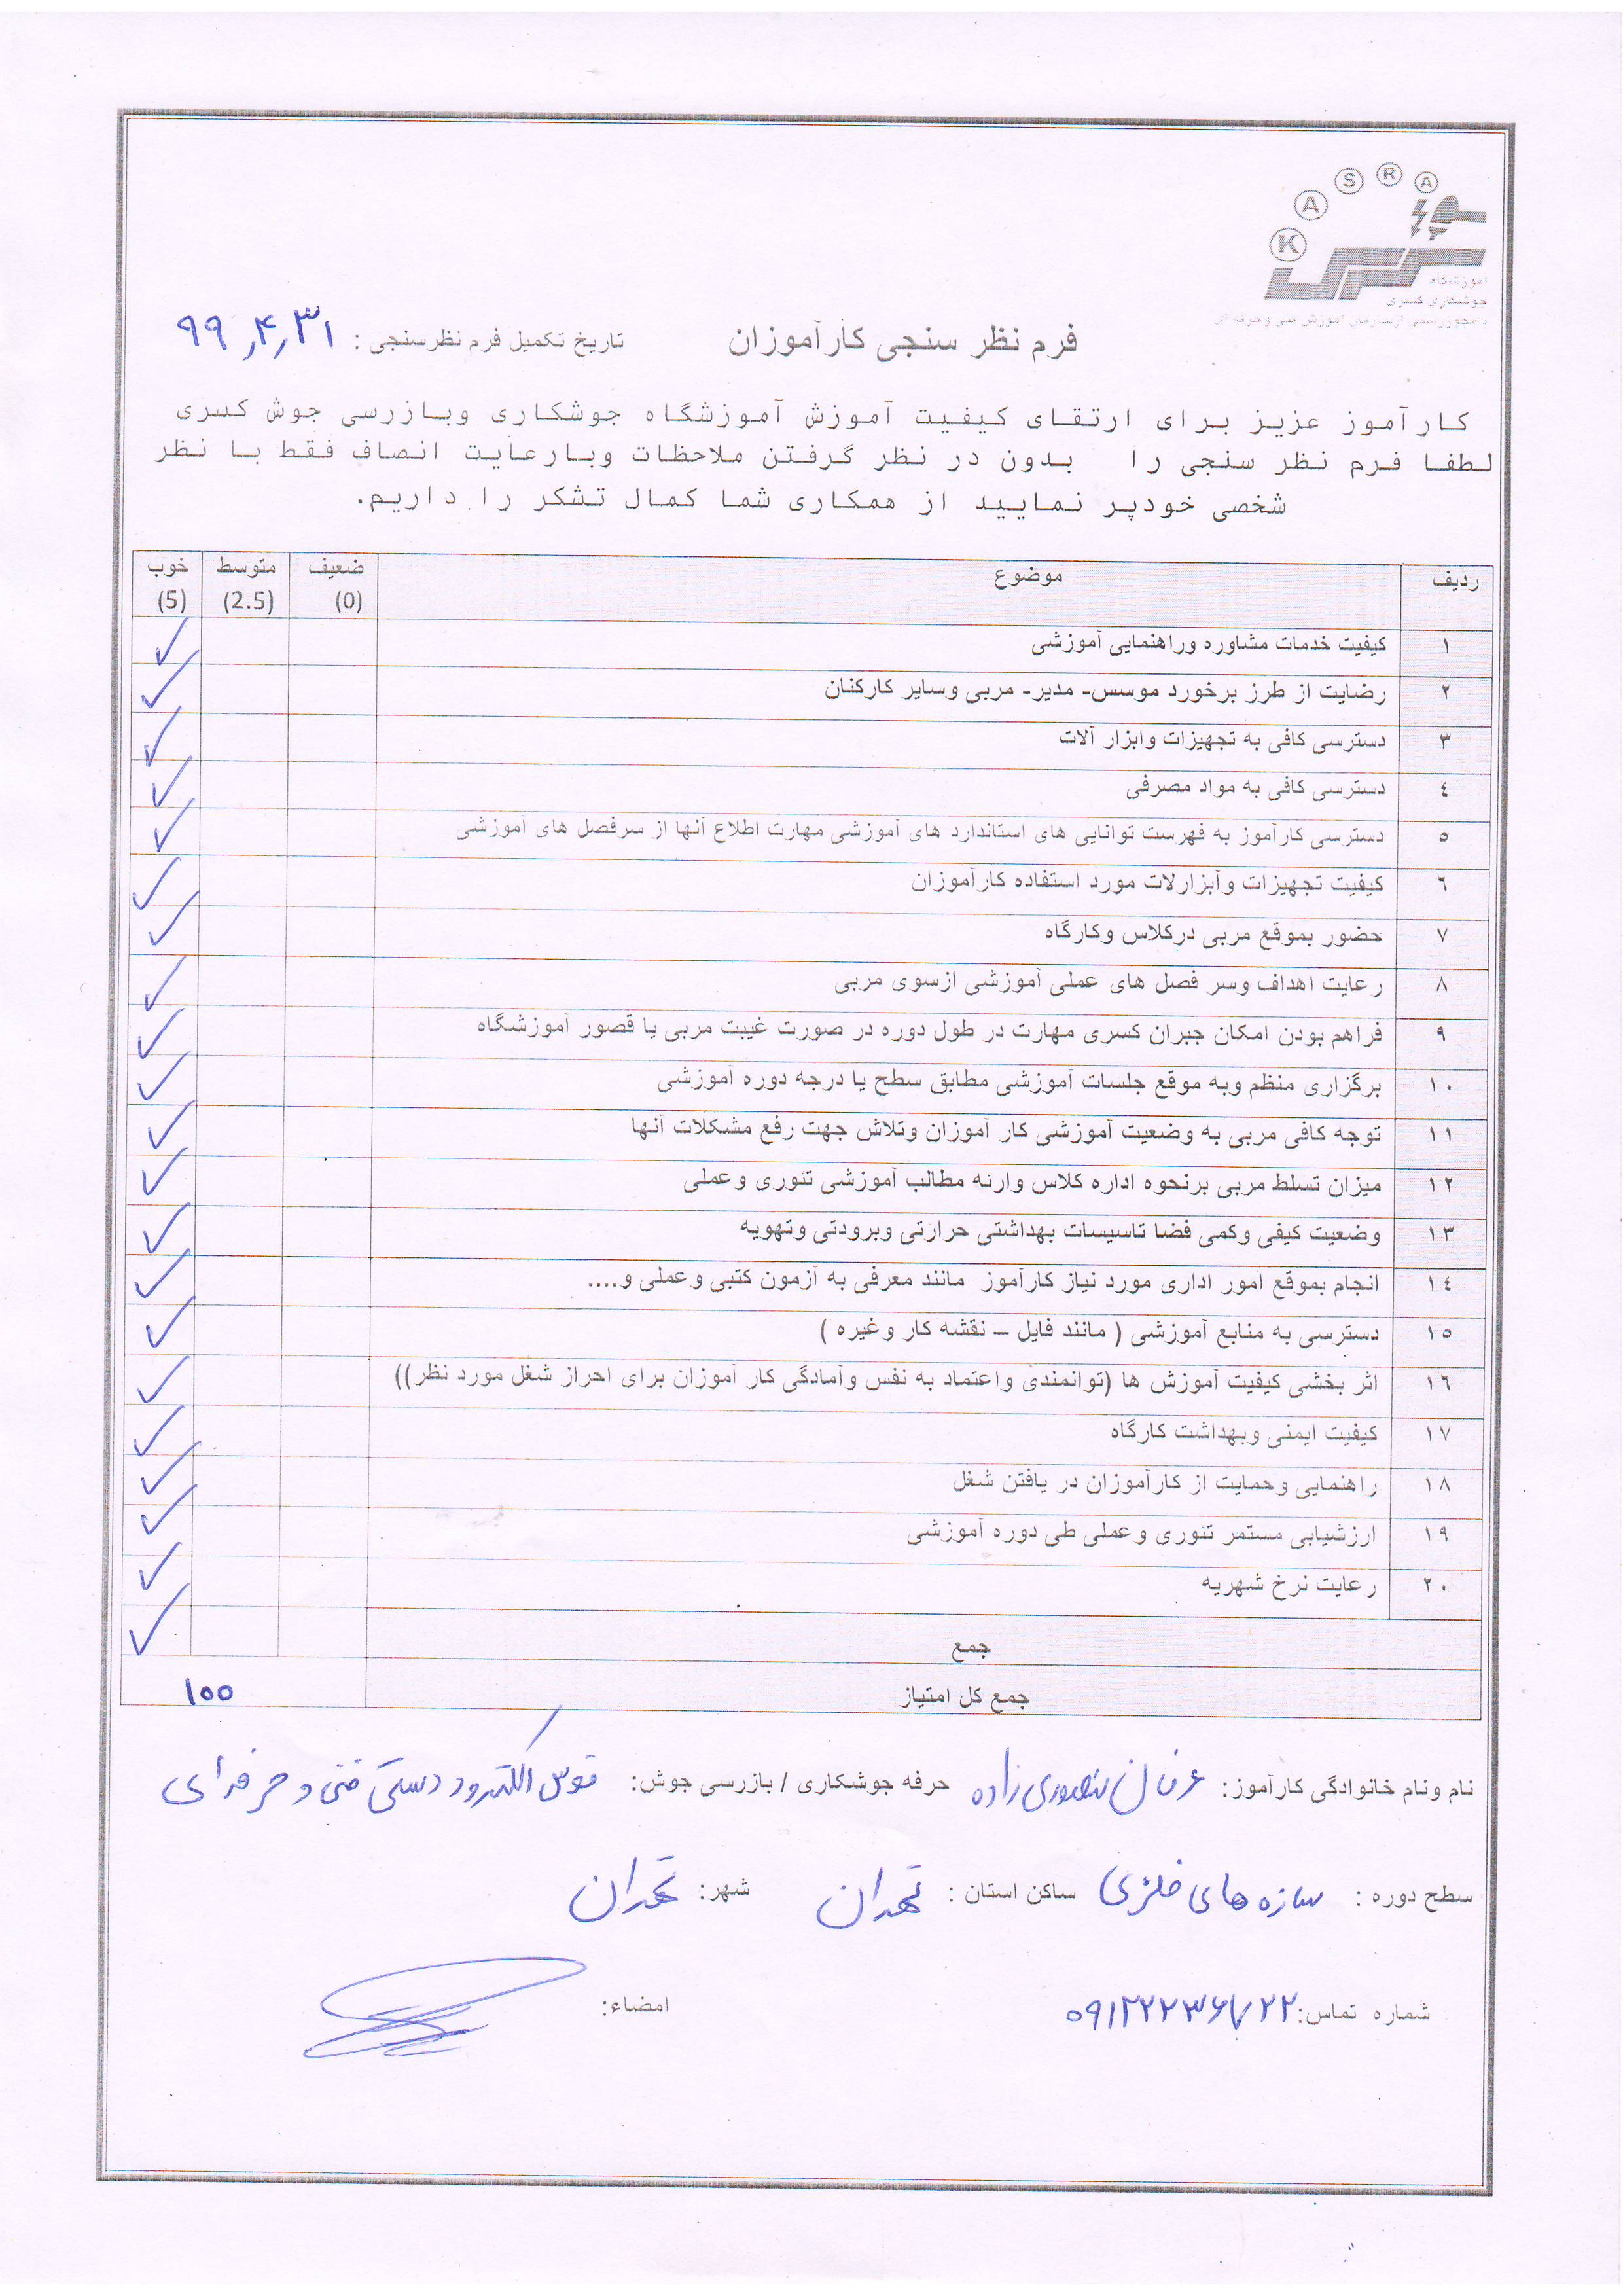 K A S R A
آموزشگاه
جوشکاری کسری
فرم نظر سنجی کارآموزان
تاریخ تکمیل فرم نظرسنجی : ۹۹,۴,۳۱
کارآموز عزیز برای ارتقای کیفیت آموزش آموزشگاه جوشکاری وبازرسی جوش کسری
لطفا فرم نظر سنجی را بدون در نظر گرفتن ملاحظات وبارعایت انصاف فقط با نظر
شخصی خودپر نمایید از همکاری شما کمال تشکر را داریم.
ردیف موضوع ضعیف (0) متوسط (2.5) خوب (5)
۱ کیفیت خدمات مشاوره وراهنمایی آموزشی ✓
۲ رضایت از طرز برخورد موسس- مدیر- مربی وسایر کارکنان ✓
۳ دسترسی کافی به تجهیزات وابزار آلات ✓
٤ دسترسی کافی به مواد مصرفی ✓
٥ دسترسی کارآموز به فهرست توانایی های استاندارد های آموزشی مهارت اطلاع آنها از سرفصل های آموزشی ✓
٦ کیفیت تجهیزات وآبزارلات مورد استفاده کارآموزان ✓
۷ حضور بموقع مربی درکلاس وکارگاه ✓
۸ رعایت اهداف وسر فصل های عملی آموزشی ازسوی مربی ✓
۹ فراهم بودن امکان جبران کسری مهارت در طول دوره در صورت غیبت مربی یا قصور آموزشگاه ✓
۱۰ برگزاری منظم وبه موقع جلسات آموزشی مطابق سطح یا درجه دوره آموزشی ✓
۱۱ توجه کافی مربی به وضعیت آموزشی کار آموزان وتلاش جهت رفع مشکلات آنها ✓
۱۲ میزان تسلط مربی برنحوه اداره کلاس وارئه مطالب آموزشی تئوری وعملی ✓
۱۳ وضعیت کیفی وکمی فضا تاسیسات بهداشتی حرارتی وبرودتی وتهویه ✓
۱٤ انجام بموقع امور اداری مورد نیاز کارآموز مانند معرفی به آزمون کتبی وعملی و.... ✓
۱٥ دسترسی به منابع آموزشی ( مانند فایل – نقشه کار وغیره ) ✓
۱٦ اثر بخشی کیفیت آموزش ها (توانمندی واعتماد به نفس وآمادگی کار آموزان برای احراز شغل مورد نظر)) ✓
۱۷ کیفیت ایمنی وبهداشت کارگاه ✓
۱۸ راهنمایی وحمایت از کارآموزان در یافتن شغل ✓
۱۹ ارزشیابی مستمر تئوری وعملی طی دوره آموزشی ✓
۲۰ رعایت نرخ شهریه ✓
جمع ✓
جمع کل امتیاز ۱۰۰
نام ونام خانوادگی کارآموز: عرفان منصوری زاده حرفه جوشکاری / بازرسی جوش: قوس الکترود دستی فنی و حرفه ای
سطح دوره : سازه های فلزی ساکن استان : تهران شهر: تهران
شماره تماس: ۰۹۱۲۲۲۳۶۷۲۲ امضاء: